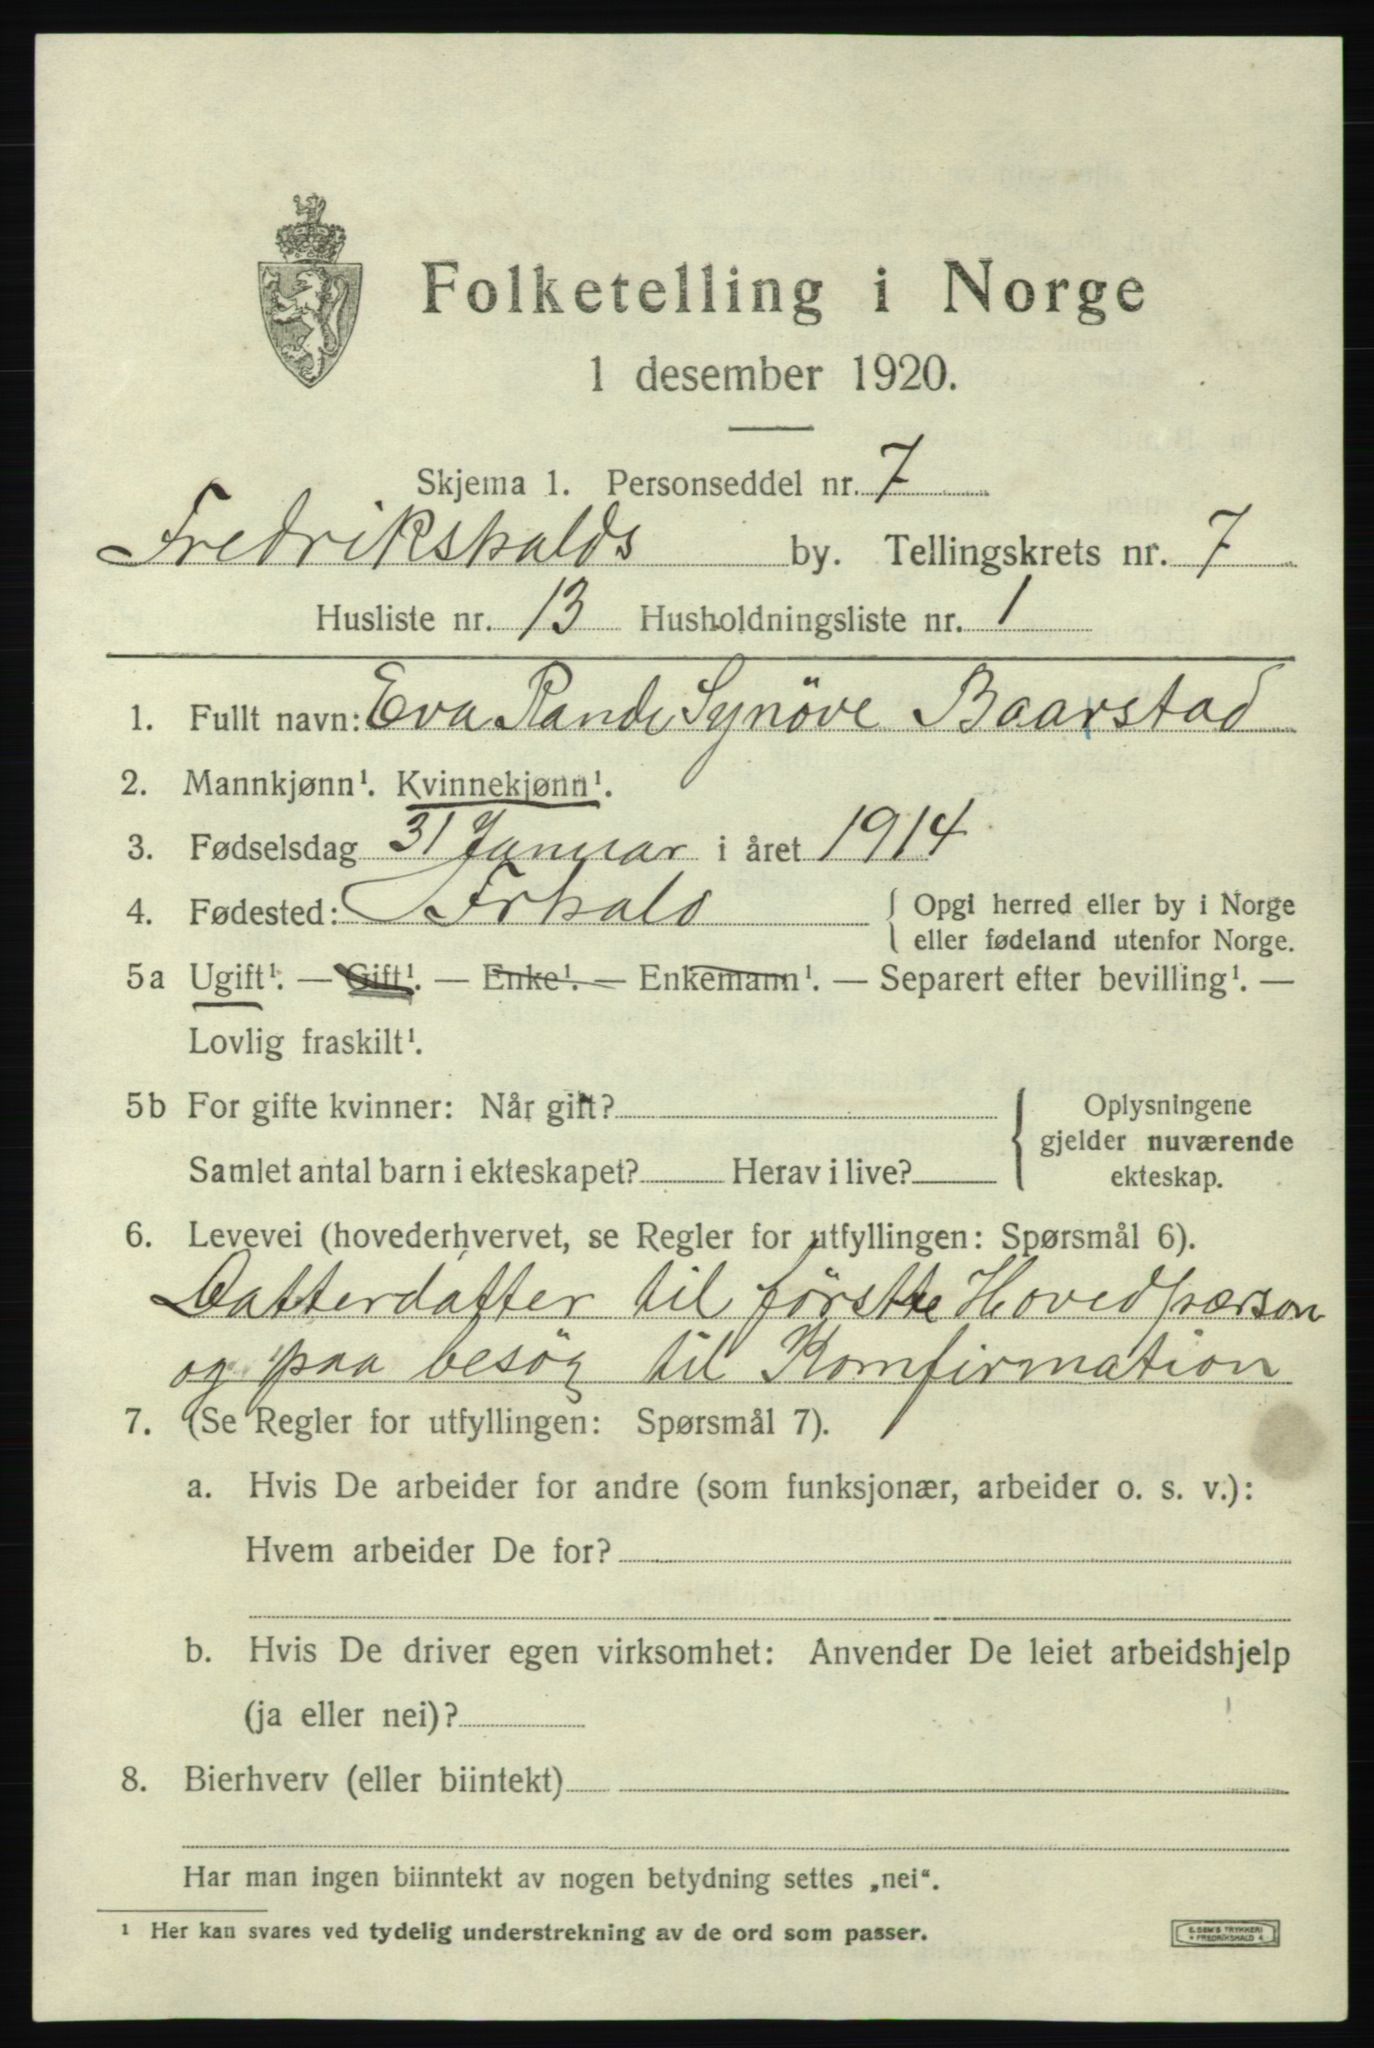 Folketelling i Norge
1 desember 1920.
Skjema 1. Personseddel nr. 7
Fredrikshalds by. Tellingskrets nr. 7
Husliste nr. 13 Husholdningsliste nr. 1
1. Fullt navn: Eva Randi Synöve Baarstad
2. Mannkjønn¹. Kvinnekjønn¹.
3. Fødselsdag 31 Januar i året 1914
4. Fødested: Frhald { Opgi herred eller by i Norge
eller fødeland utenfor Norge.
5a Ugift¹. — Gift¹. — Enke¹. — Enkemann¹. — Separert efter bevilling¹. —
Lovlig fraskilt¹.
5b For gifte kvinner: Når gift? { Oplysningene
gjelder nuværende
Samlet antal barn i ekteskapet? Herav i live? ekteskap.
6. Levevei (hovederhvervet, se Regler for utfyllingen: Spørsmål 6).
Datterdatter til förstte Hovedpærson
og paa besög til Komfirmation
7. (Se Regler for utfyllingen: Spørsmål 7).
a. Hvis De arbeider for andre (som funksjonær, arbeider o. s. v.):
Hvem arbeider De for?
b. Hvis De driver egen virksomhet: Anvender De leiet arbeidshjelp
(ja eller nei)?
8. Bierhverv (eller biintekt)
Har man ingen biinntekt av nogen betydning settes „nei“.
¹ Her kan svares ved tydelig understrekning av de ord som passer.
TRYKKERI
FREDRIKSHALD